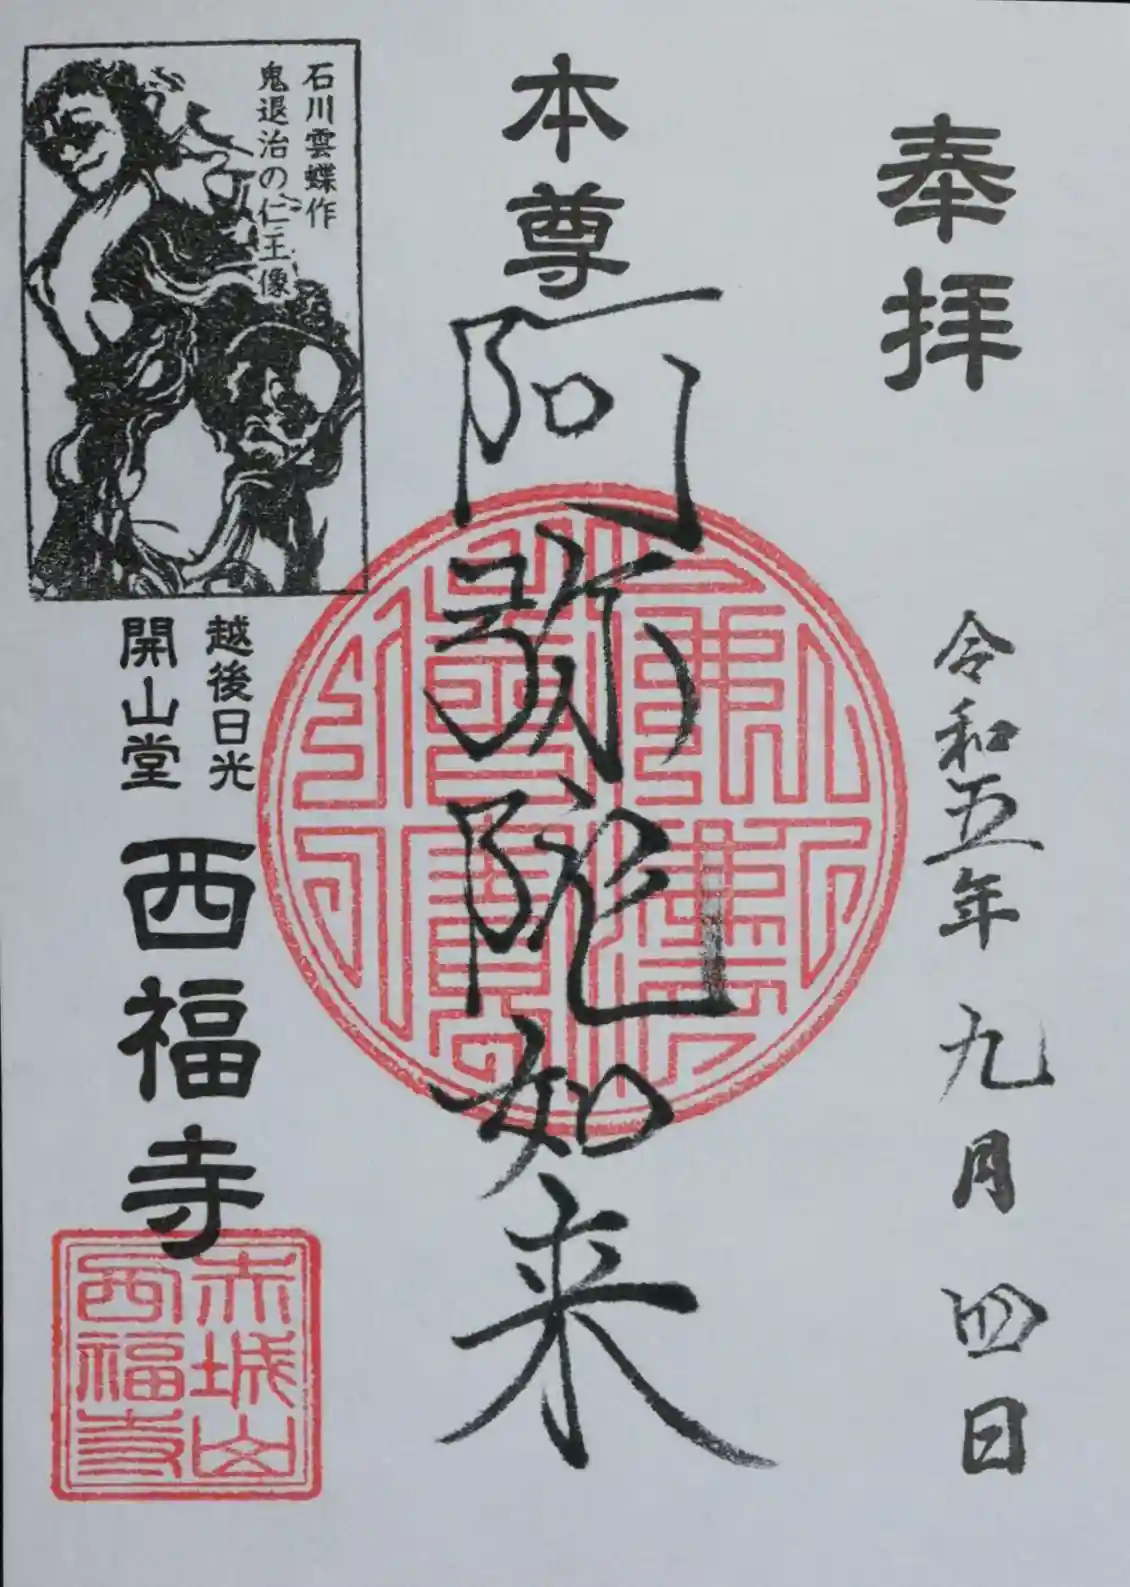 奉拝
令和五年九月四日
本尊
阿弥陀如来
石川雲蝶作
鬼退治の仁王像
越後日光
開山堂
西福寺
赤城山
西福寺